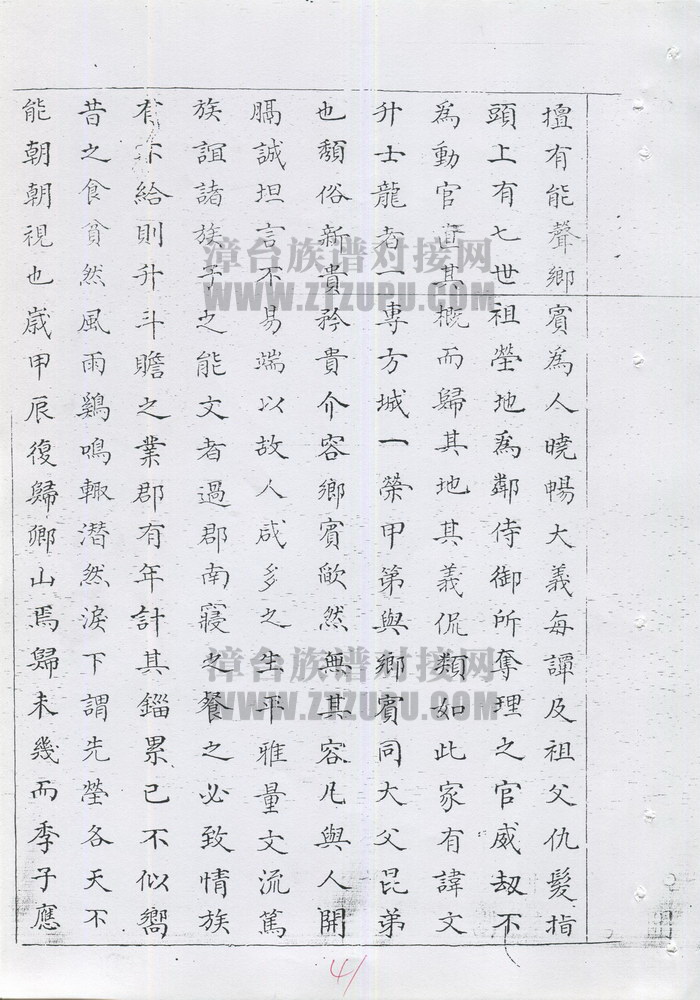 擅有能聲鄉賓為人曉暢大義每譚及祖父仇髮指
頭上有七世祖塋地爲鄰侍御所奪理之官威劫不
為動官直其概而歸其地其義侃類如此家有諱文
升士龍者一專方城一榮甲第與鄉賓同大父昆弟
也頹俗新貴矜貴介容鄉賓歉然無其容凡與人開
膈誠坦言不易端以故人咸多之生平雅量文流篤
族誼諸族子之能文者過郡南寢之餐之必致情族
有不給則升斗贍之業郡有年計其錙累已不似嚮
昔之食貧然風雨鷄鳴輙潛然淚下謂先塋各天不
能朝朝視也歲甲辰復歸鄉山焉歸未幾而季子應
漳台族谱对接网
WWW.ZTZUPU.COM
漳台族谱对接网
WWW.ZTZUPU.COM
41